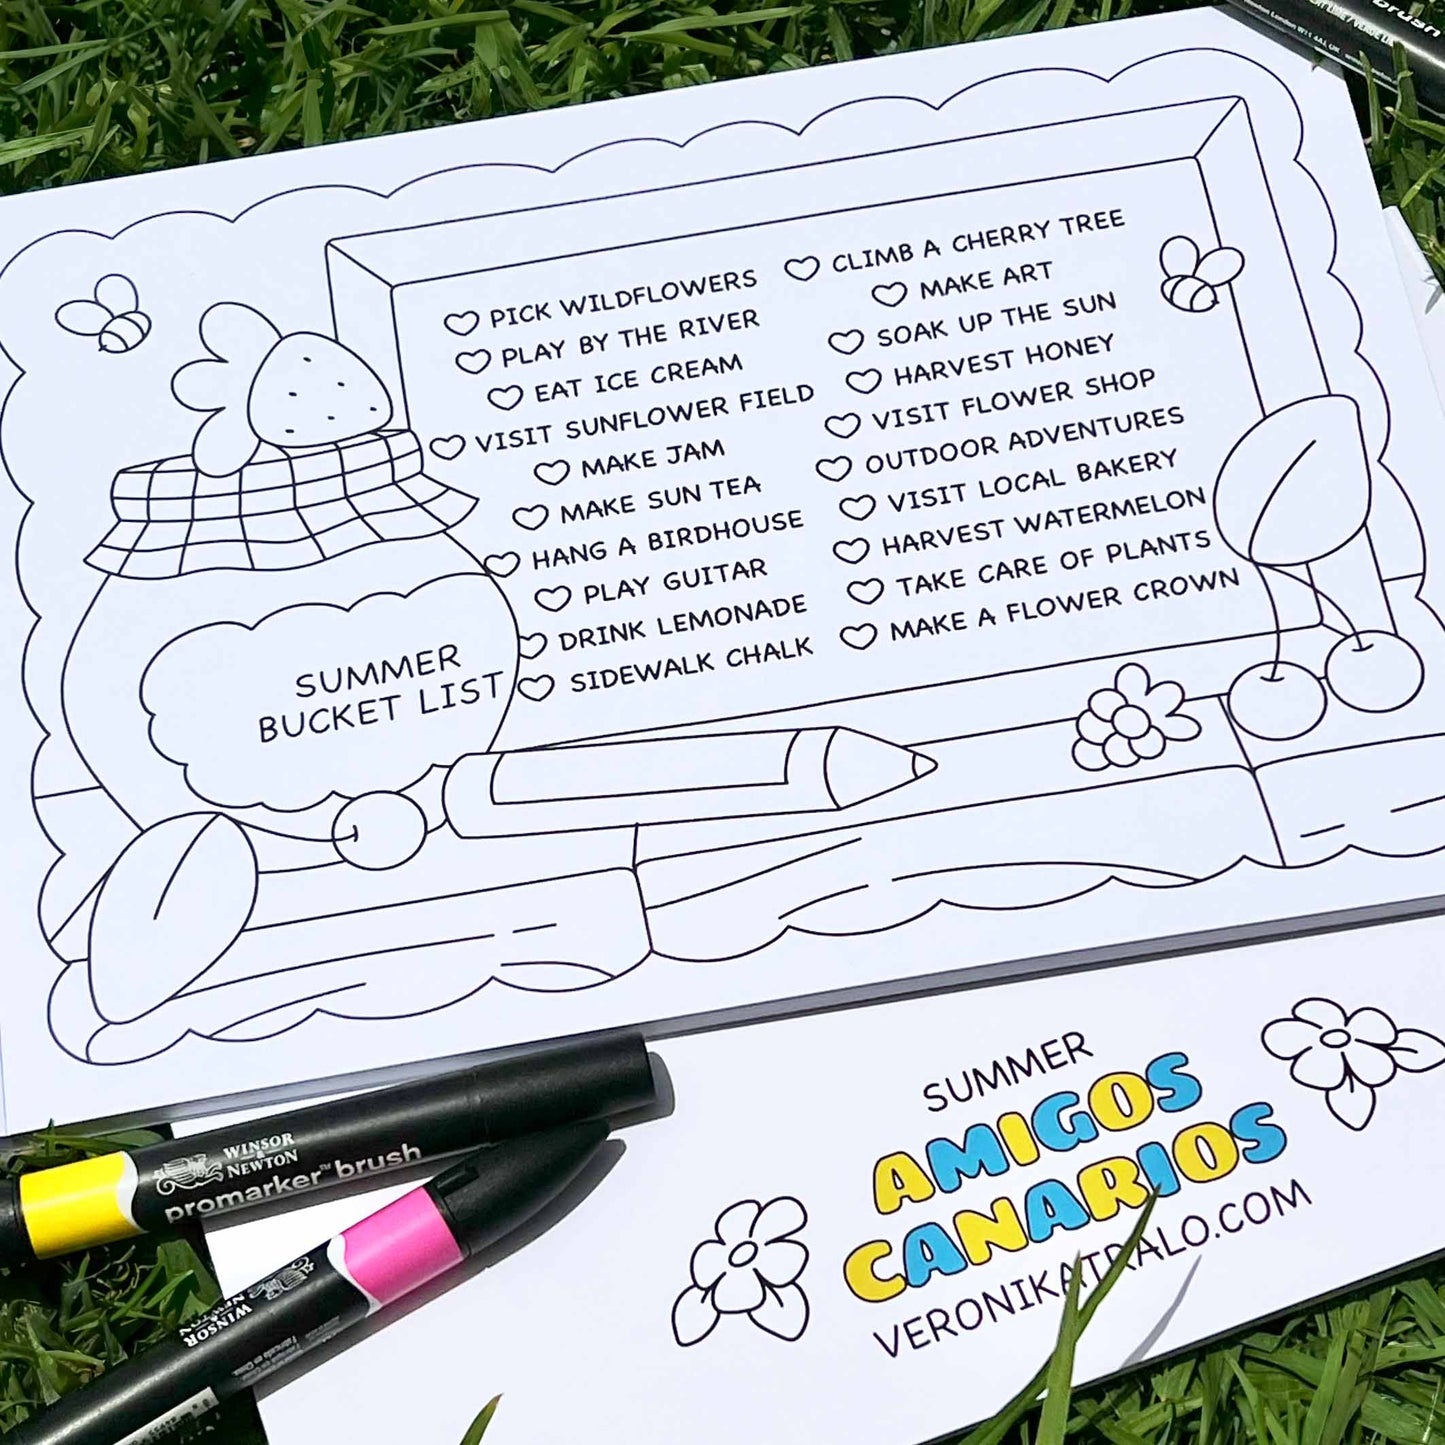 brush
SUMMER
BUCKET LIST
PICK WILDFLOWERS
PLAY BY THE RIVER
EAT ICE CREAM
VISIT SUNFLOWER FIELD
MAKE JAM
MAKE SUN TEA
HANG A BIRDHOUSE
PLAY GUITAR
DRINK LEMONADE
SIDEWALK CHALK
CLIMB A CHERRY TREE
MAKE ART
SOAK UP THE SUN
HARVEST HONEY
VISIT FLOWER SHOP
OUTDOOR ADVENTURES
VISIT LOCAL BAKERY
HARVEST WATERMELON
TAKE CARE OF PLANTS
MAKE A FLOWER CROWN
WINSOR
& NEWTON
promarker™ brush
WINSOR
& NEWTON
SUMMER
AMIGOS
CANARIOS
VERONIKATRALO.COM